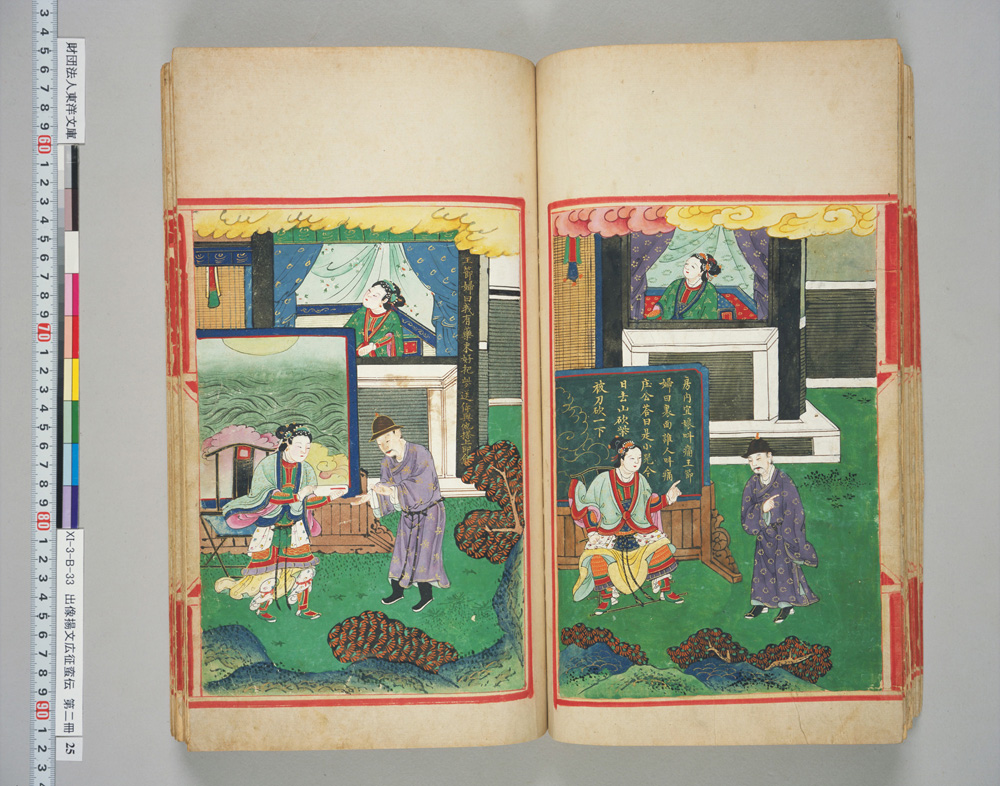 財団法人東洋文庫
XI-3-B-33 出像揚文広征蛮伝 第二冊 25
3 4 5 6 7 8 9 60 1 2 3 4 5 6 7 8 9 70 1 2 3 4 5 6 7 8 9 80 1 2 3 4 5 6 7 8 9 90 1 2 3
房内宜娘呌痛王節
婦曰裏面誰人呌痛
庄公答曰是小児今
日去山砍柴
被刀砍一下
王節婦曰我有藥末好把些送你與他搽